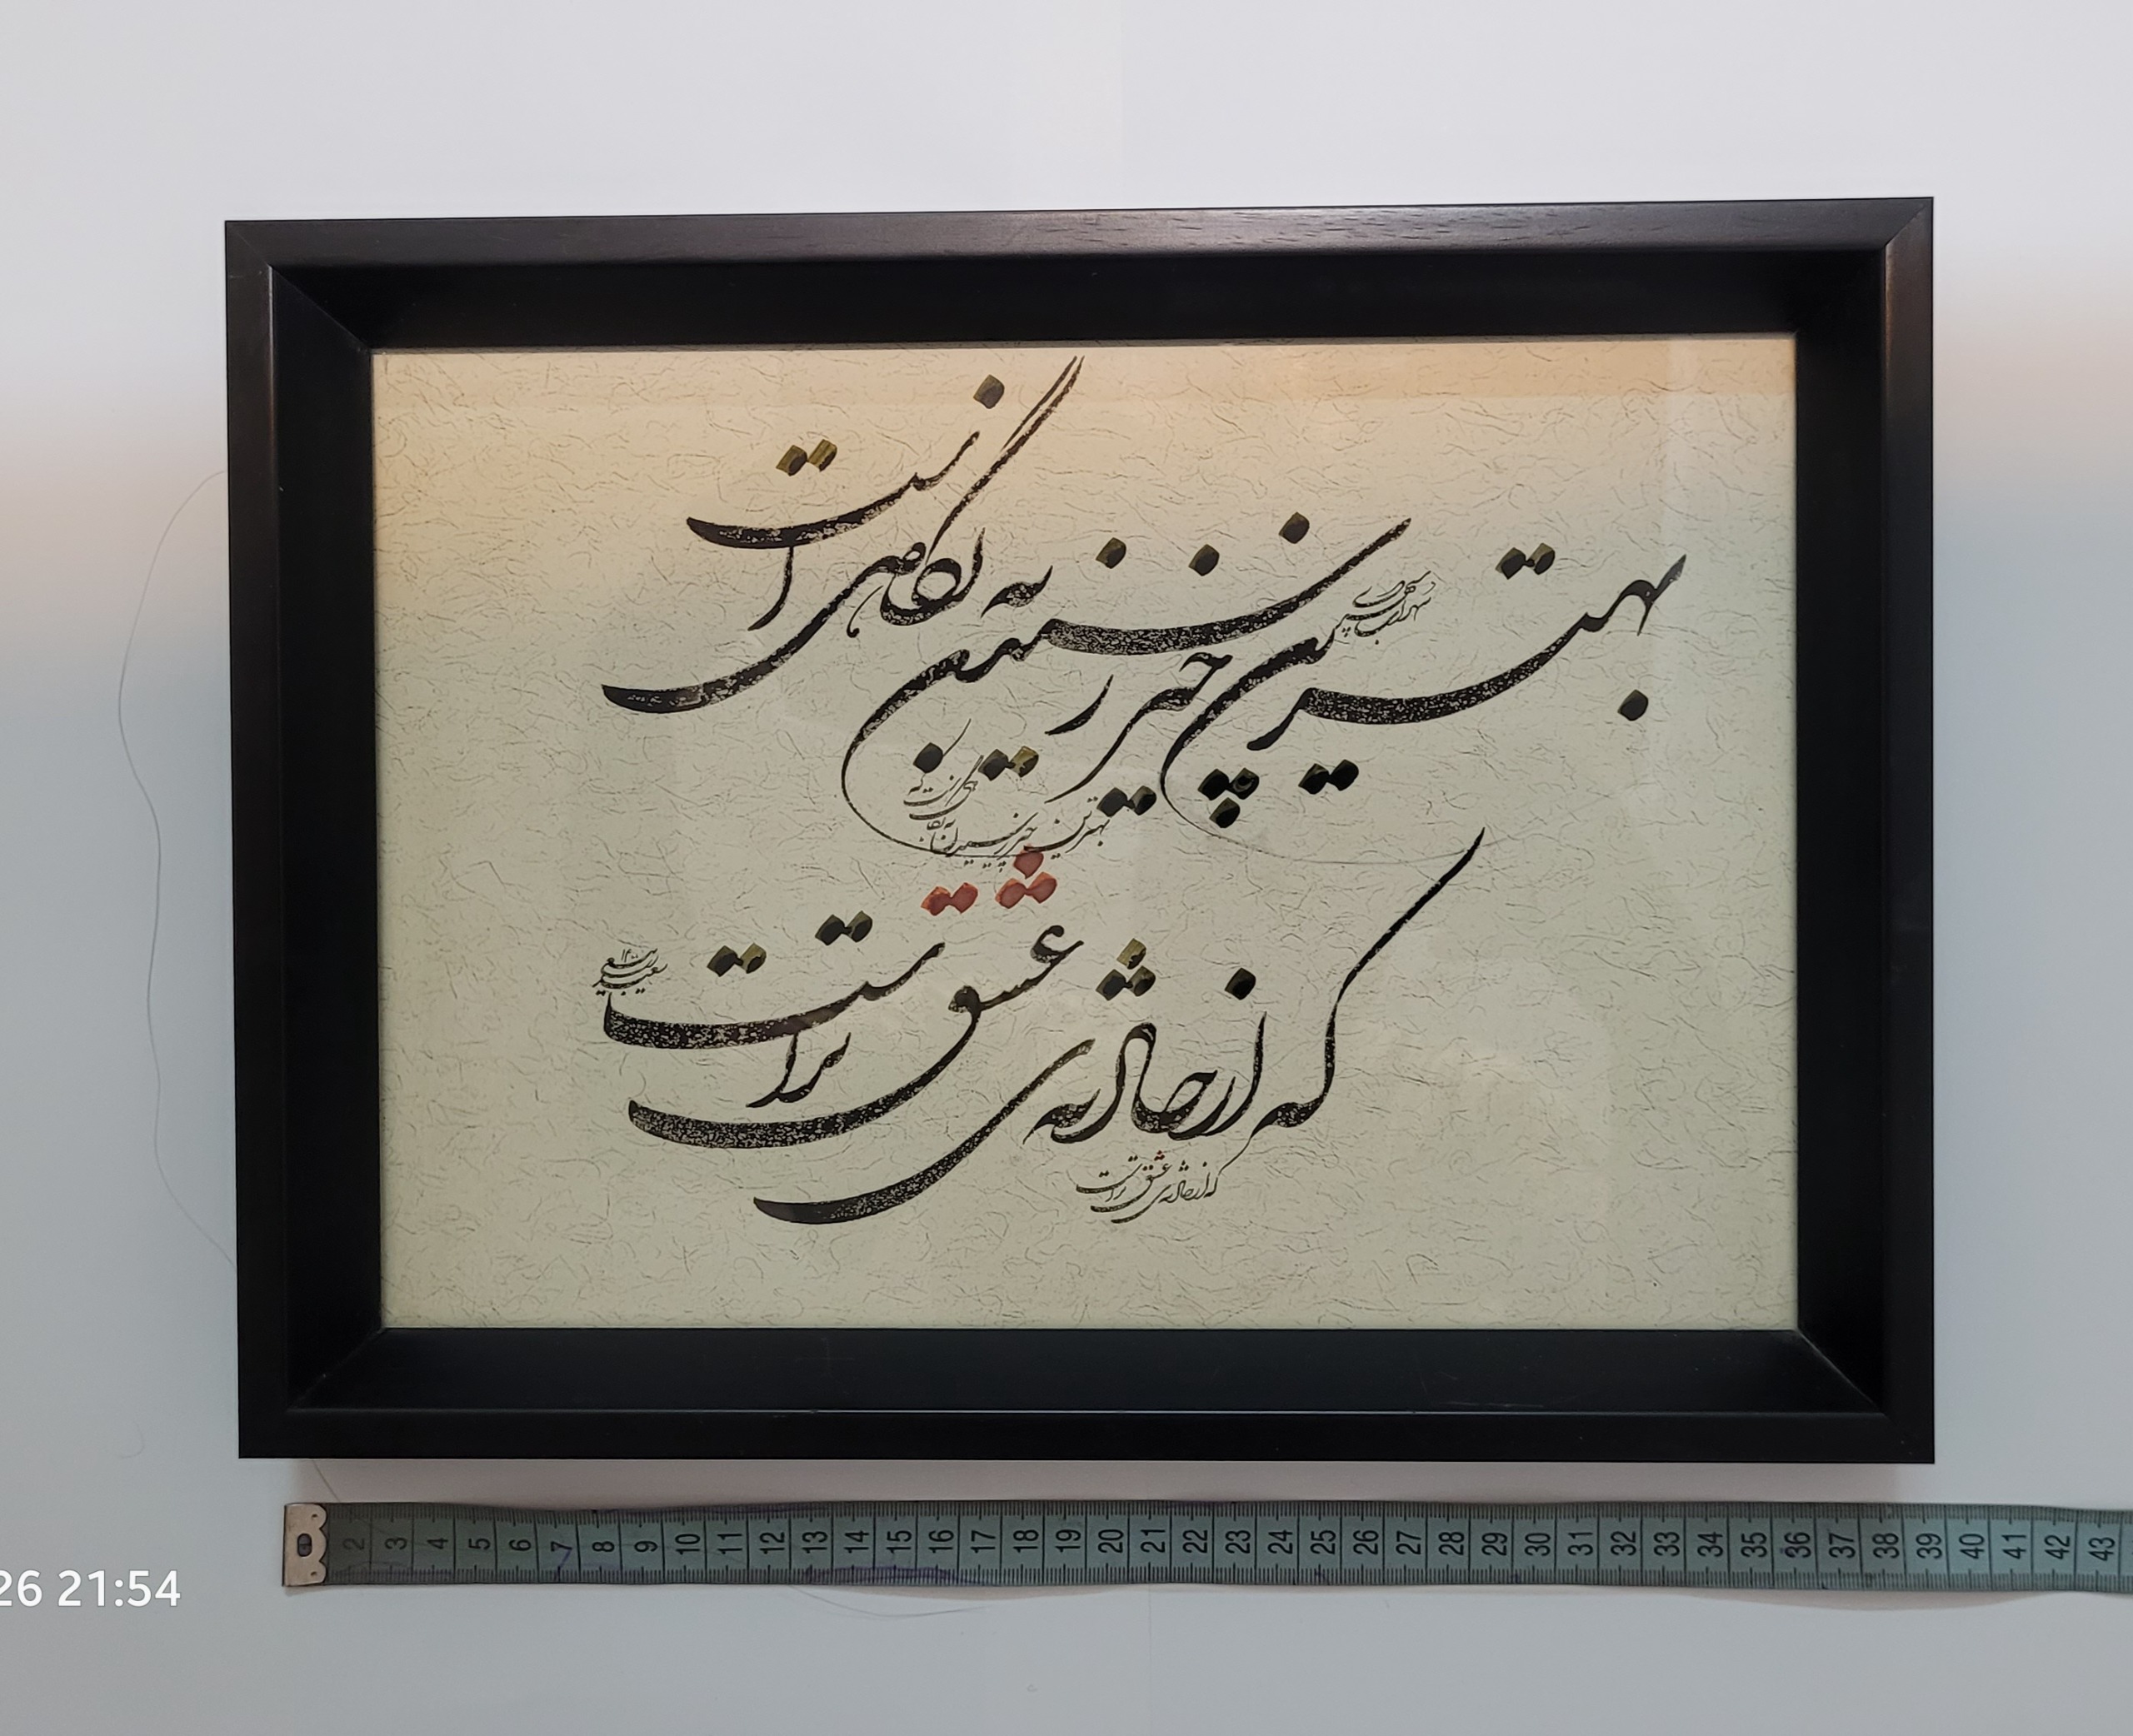 بهترین چیز رسیدن به نگاهی است
سهراب سپهری
بهترین چیز رسیدن به نگاهی است که
که از حادثه‌ی عشق تر است
سعید
که از حادثه‌ی عشق تر است
2 3 4 5 6 7 8 9 10 11 12 13 14 15 16 17 18 19 20 21 22 23 24 25 26 27 28 29 30 31 32 33 34 35 36 37 38 39 40 41 42 43
26 21:54